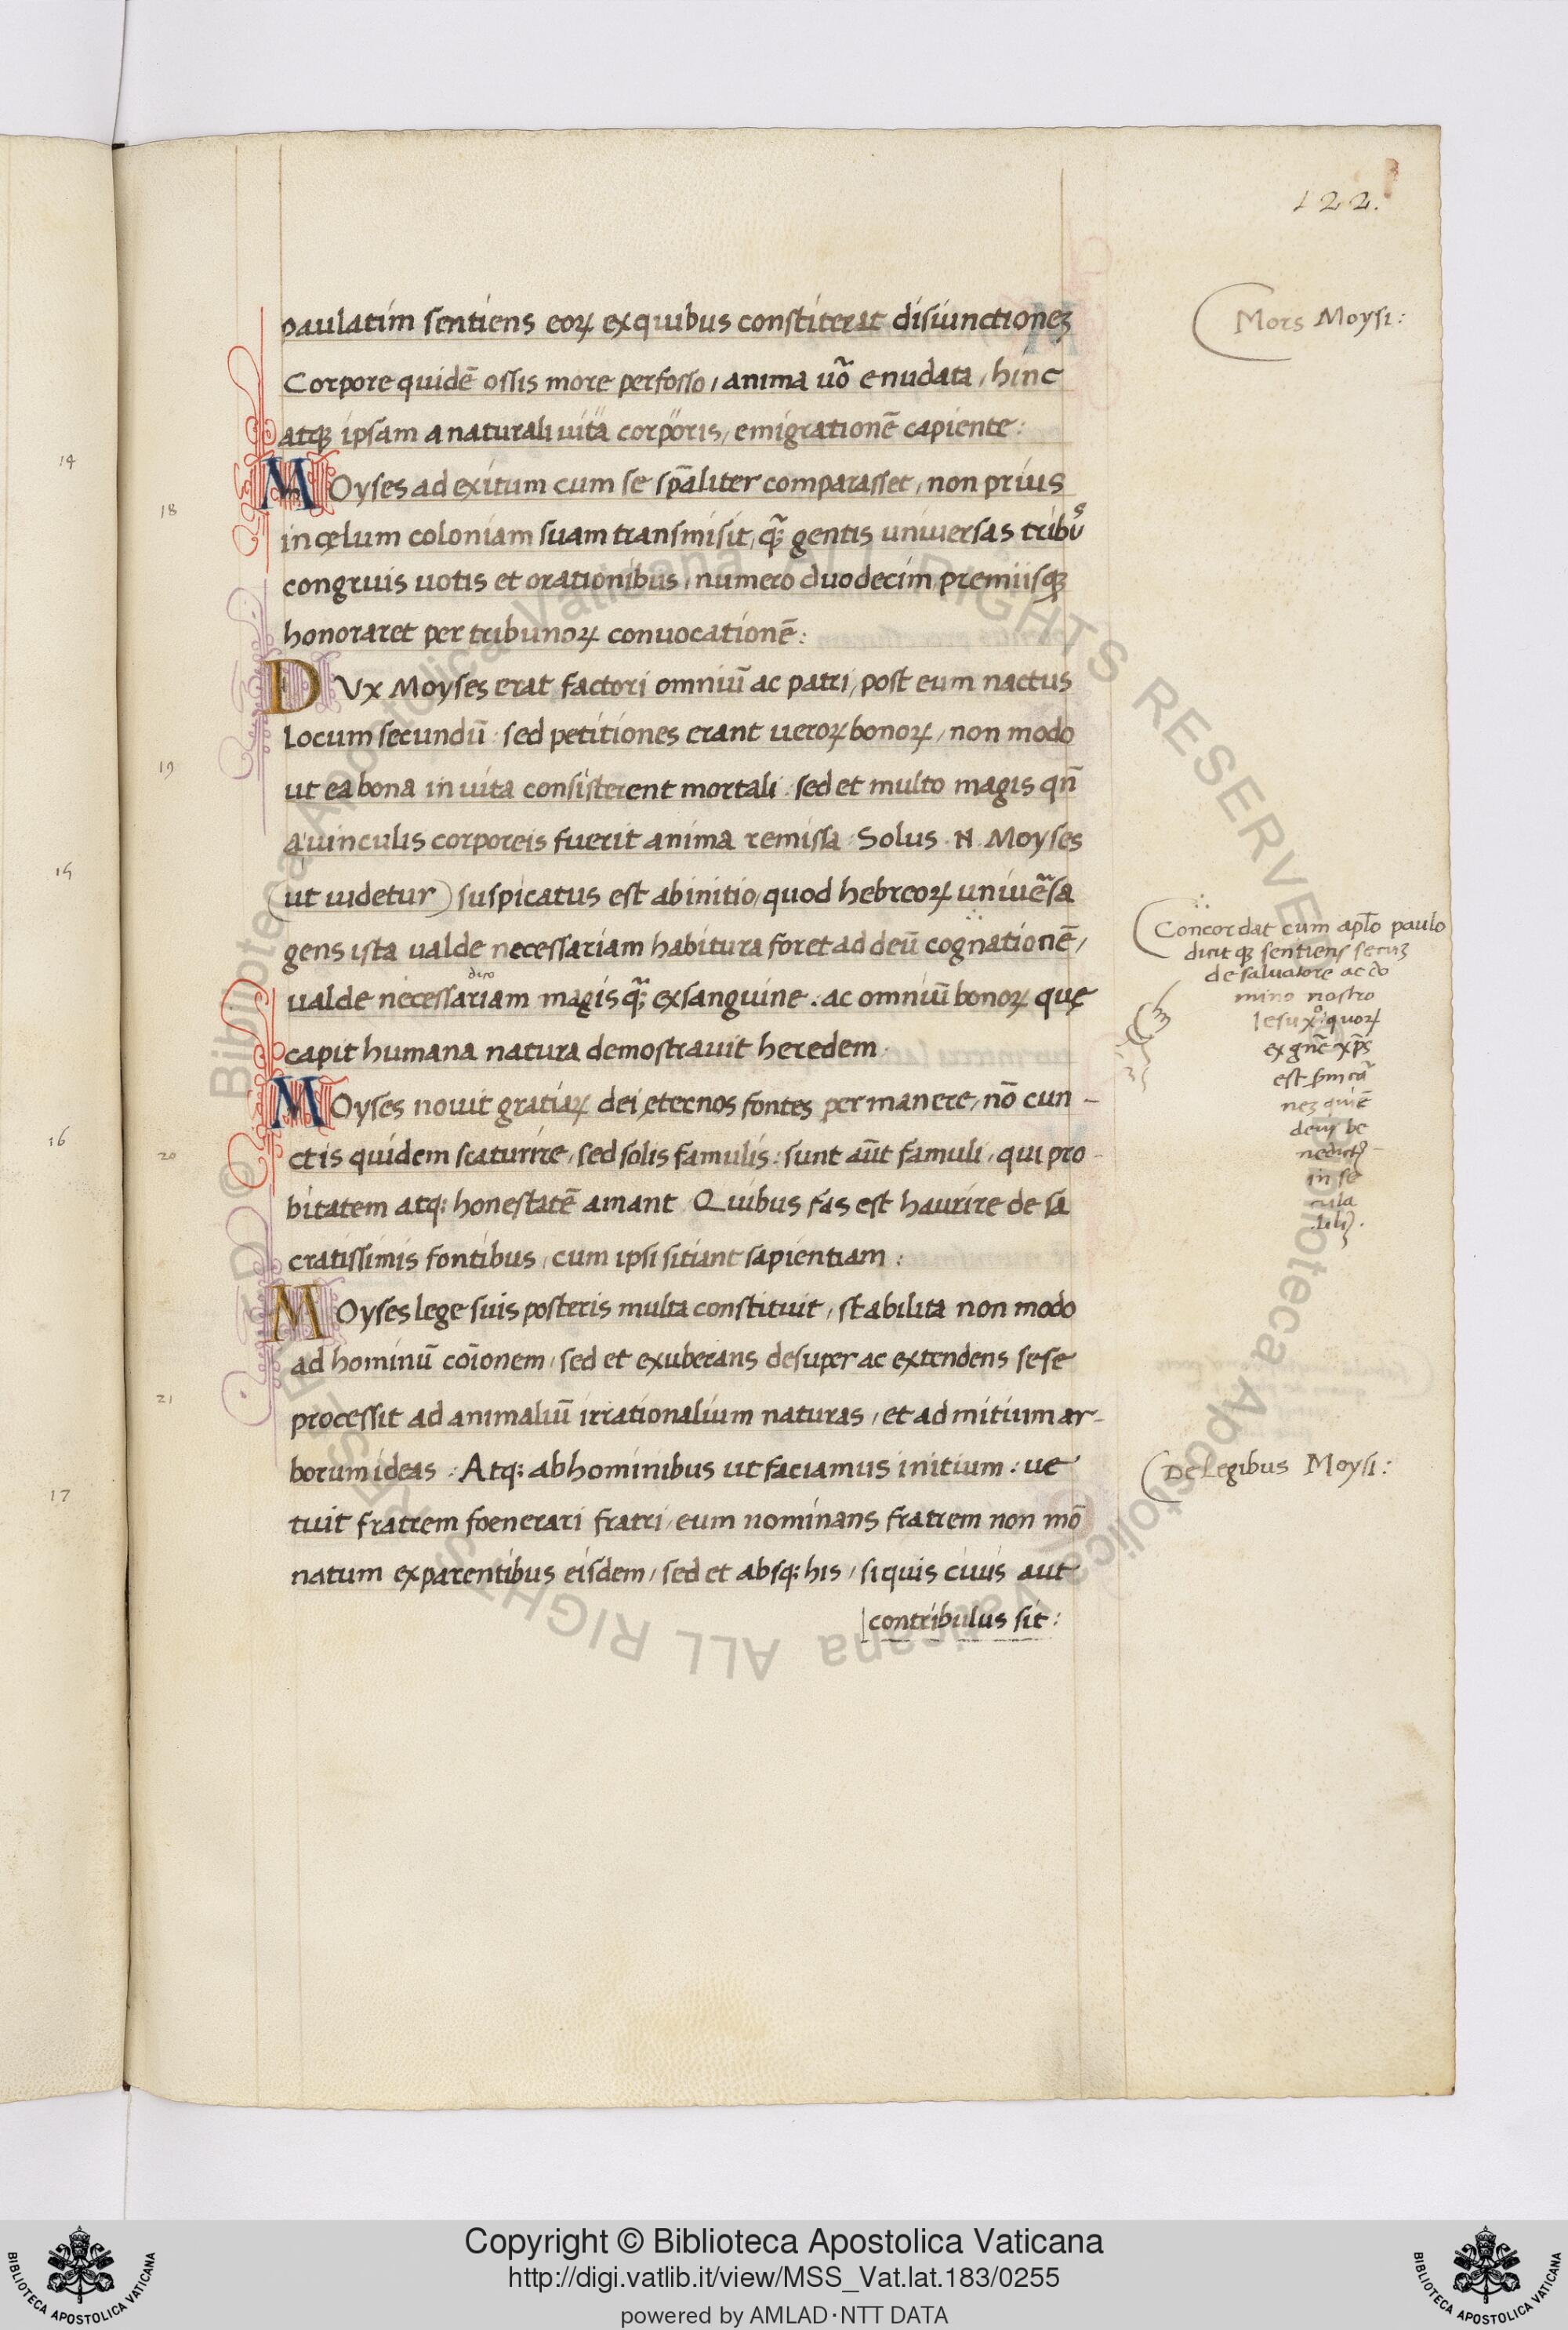 122.
Mors Moysi:
paulatim sentiens eoꝝ ex quibus constiterat disiunctioneꝫ
Corpore quidē ossis more perfosso, anima uõ enudata, hinc
atqꝫ ipsam a naturali uita corporis, emigrationē capiente:
14
MOyses ad exitum cum se spāliter comparasset, non prius
18
in cęlum coloniam suam transmisit, q̃ꝫ gentis universas tribus
congruis uotis et orationibus, numero duodecim premiisqꝫ
honoraret per tribunoꝝ conuocationē:
DVx Moyses erat factori omniū ac patri, post eum nactus
locum secundū: sed petitiones erant ueroꝝ bonoꝝ, non modo
19
ut ea bona in uita consisterent mortali: sed et multo magis qn̄
a uinculis corporeis fuerit anima remissa: Solus .N. Moyses
15
(ut uidetur) suspicatus est ab initio, quod hebreoꝝ univẽsa
gens ista ualde necessariam habitura foret ad deū cognationē,
dico
ualde necessariam magis q̃ꝫ ex sanguine: ac omniū bonoꝝ quę
capit humana natura demostrauit heredem.
Concordat cum apl̄o paulo
dicit qꝫ sentiens secuꝫ
de saluatore ac do
mino nostro
Iesu xº: quoꝝ
ex gn̄e xp̄s
est
neꝫ qui ē
deus be
in se
cula
MOyses novit gratiaꝝ dei ęternos fontes permanere, nō cun-
16
20
ctis quidem scaturire, sed solis famulis: sunt aūt famuli, qui pro-
bitatem atqꝫ honestatē amant. Quibus fas est haurire de sa
cratissimis fontibus, cum ipsi sitiant sapientiam:
MOyses lege suis posteris multa constituit, stabilita non modo
ad hominū coīonem, sed et exuberans desuper ac extendens sese
21
processit ad animaliū irrationalium naturas, et ad mitium ar-
borum ideas: Atqꝫ ab hominibus ut faciamus initium: ue
De Legibus Moysi:
17
tuit fratrem foenerari fratri, eum nominans fratrem non mō
natum ex parentibus eisdem, sed et absqꝫ his, si quis civis aut
contribulus sit:
© Biblioteca Apostolica Vaticana ALL RIGHTS RESERVED
© Biblioteca Apostolica Vaticana ALL RIGHTS RESERVED
BIBLIOTECA APOSTOLICA VATICANA
Copyright © Biblioteca Apostolica Vaticana
http://digi.vatlib.it/view/MSS_Vat.lat.183/0255
powered by AMLAD·NTT DATA
BIBLIOTECA APOSTOLICA VATICANA